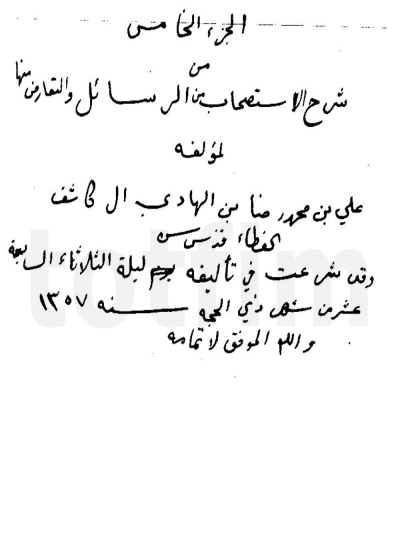 الجزء الخامس
من
شرح الاستصحاب من الرسائل والتعارض منها
لمؤلفه
علي بن محمد رضا بن الهادي ال كاشف
الغطاء قدس سره
وقد شرعت في تأليفه ليلة الثلاثاء السابعة
عشر من شهر ذي الحجه سنه ١٣٥٧
والله الموفق لاتمامه
totfim